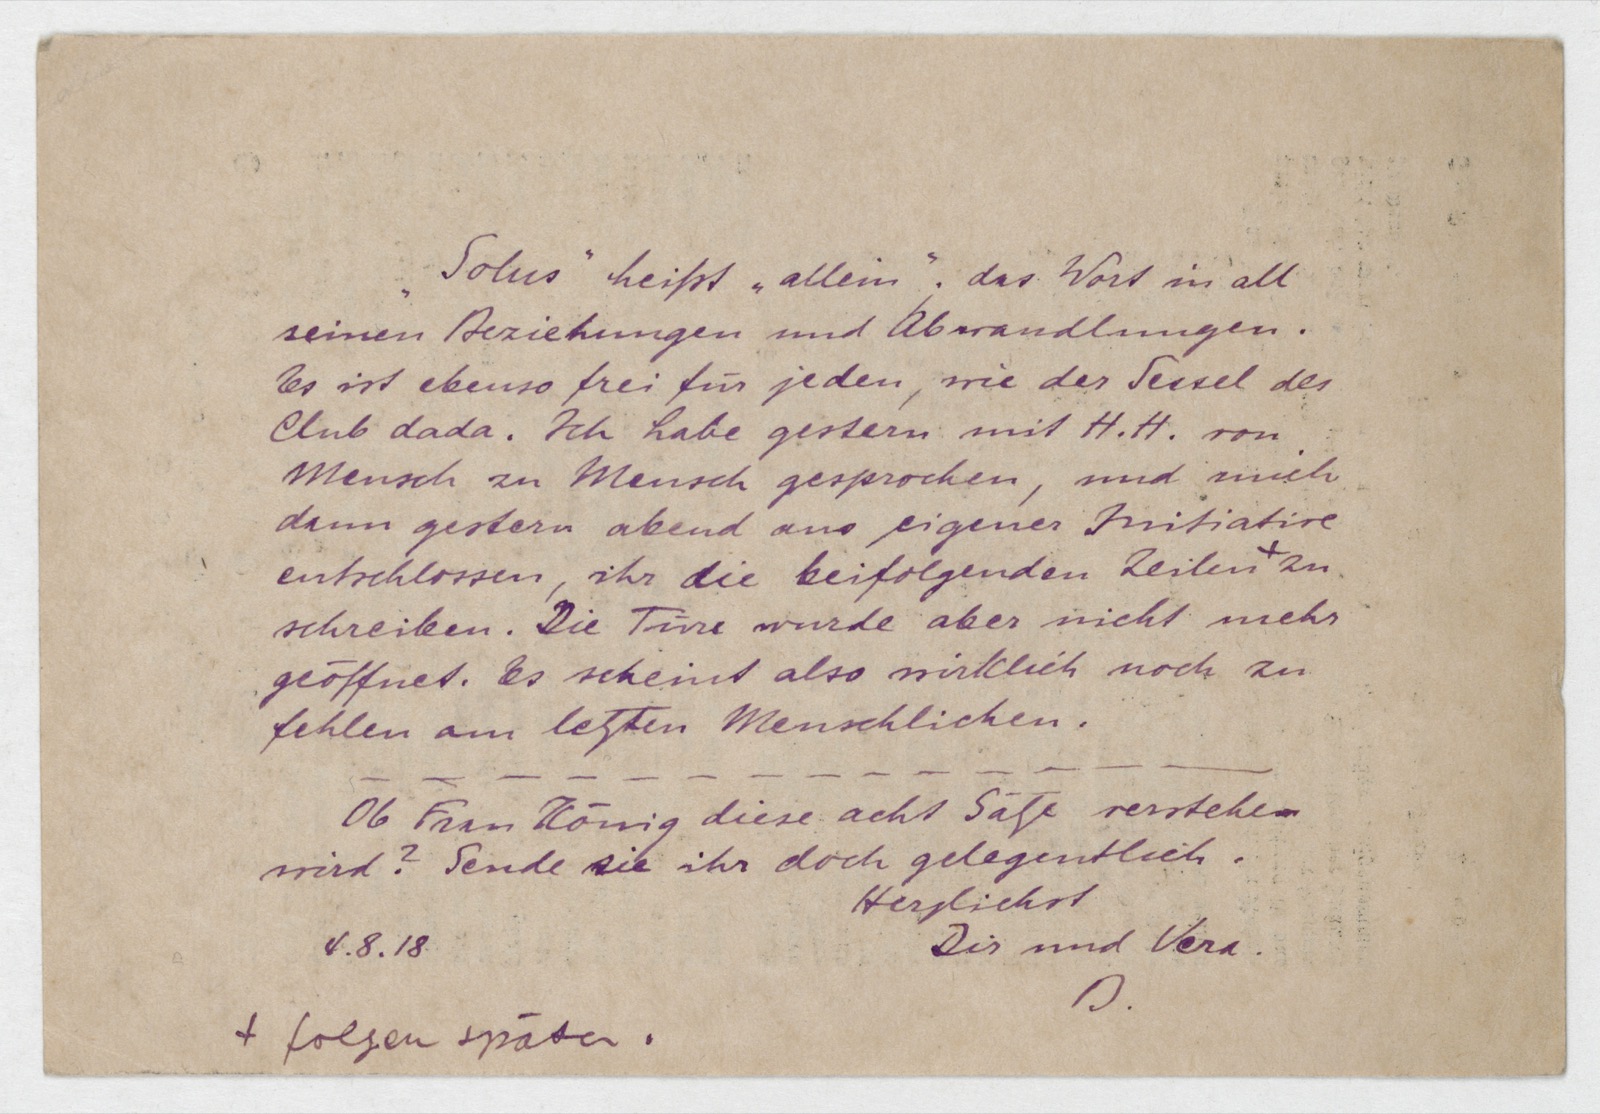 „Solus“ heißt „allein“, das Wort in all
seinen Beziehungen und Abwandlungen.
Es ist ebenso frei für jeden, wie der Sessel des
Club dada. Ich habe gestern mit H.H. von
Mensch zu Mensch gesprochen, und mich
dann gestern abend aus eigener Initiative
entschlossen, ihr die beifolgenden Zeilen + zu
schreiben. Die Türe wurde aber nicht mehr
geöffnet. Es scheint also wirklich noch zu
fehlen am letzten Menschlichen.
Ob Frau König diese acht Sätze verstehen
wird? Sende sie ihr doch gelegentlich.
Herzlichst
4.8.18 Dir und Vera.
B.
+ folgen später.